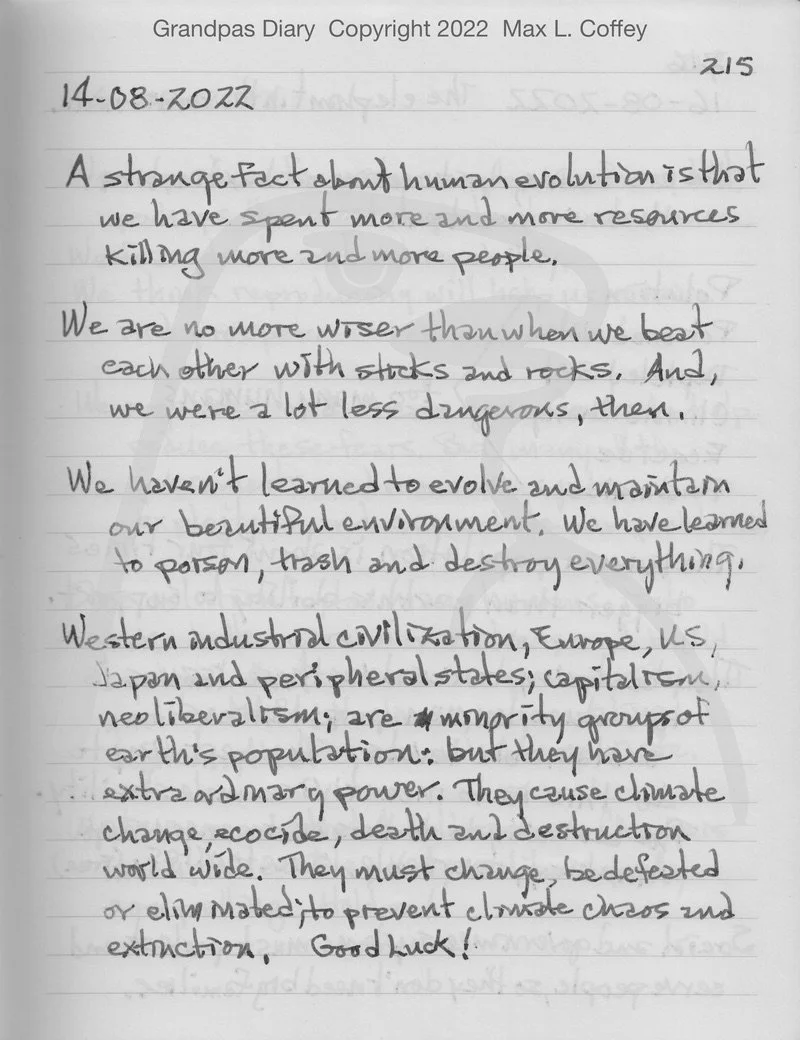 Grandpas Diary Copyright 2022 Max L. Coffey
215
14-08-2022
A strange fact about human evolution is that
we have spent more and more resources
killing more and more people.
We are no more wiser than when we beat
each other with sticks and rocks. And,
we were a lot less dangerous, then.
We haven't learned to evolve and maintain
our beautiful environment. We have learned
to poison, trash and destroy everything.
Western industrial civilization, Europe, US,
Japan and peripheral states; capitalism,
neoliberalism; are minority groups of
earth's population: but they have
extraordinary power. They cause climate
change, ecocide, death and destruction
world wide. They must change, be defeated
or eliminated; to prevent climate chaos and
extinction. Good Luck!